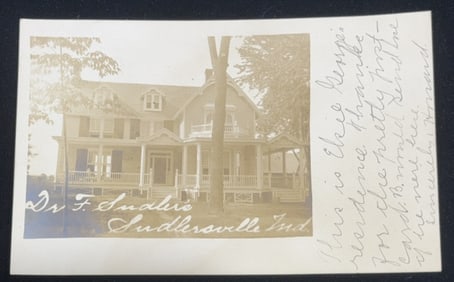 Dr F. Sudlers
Sudlersville Md.
This is Elsie George's
residence. Thanks
for the pretty post-
card. B. would send one
if he were here
sincerely, Howard